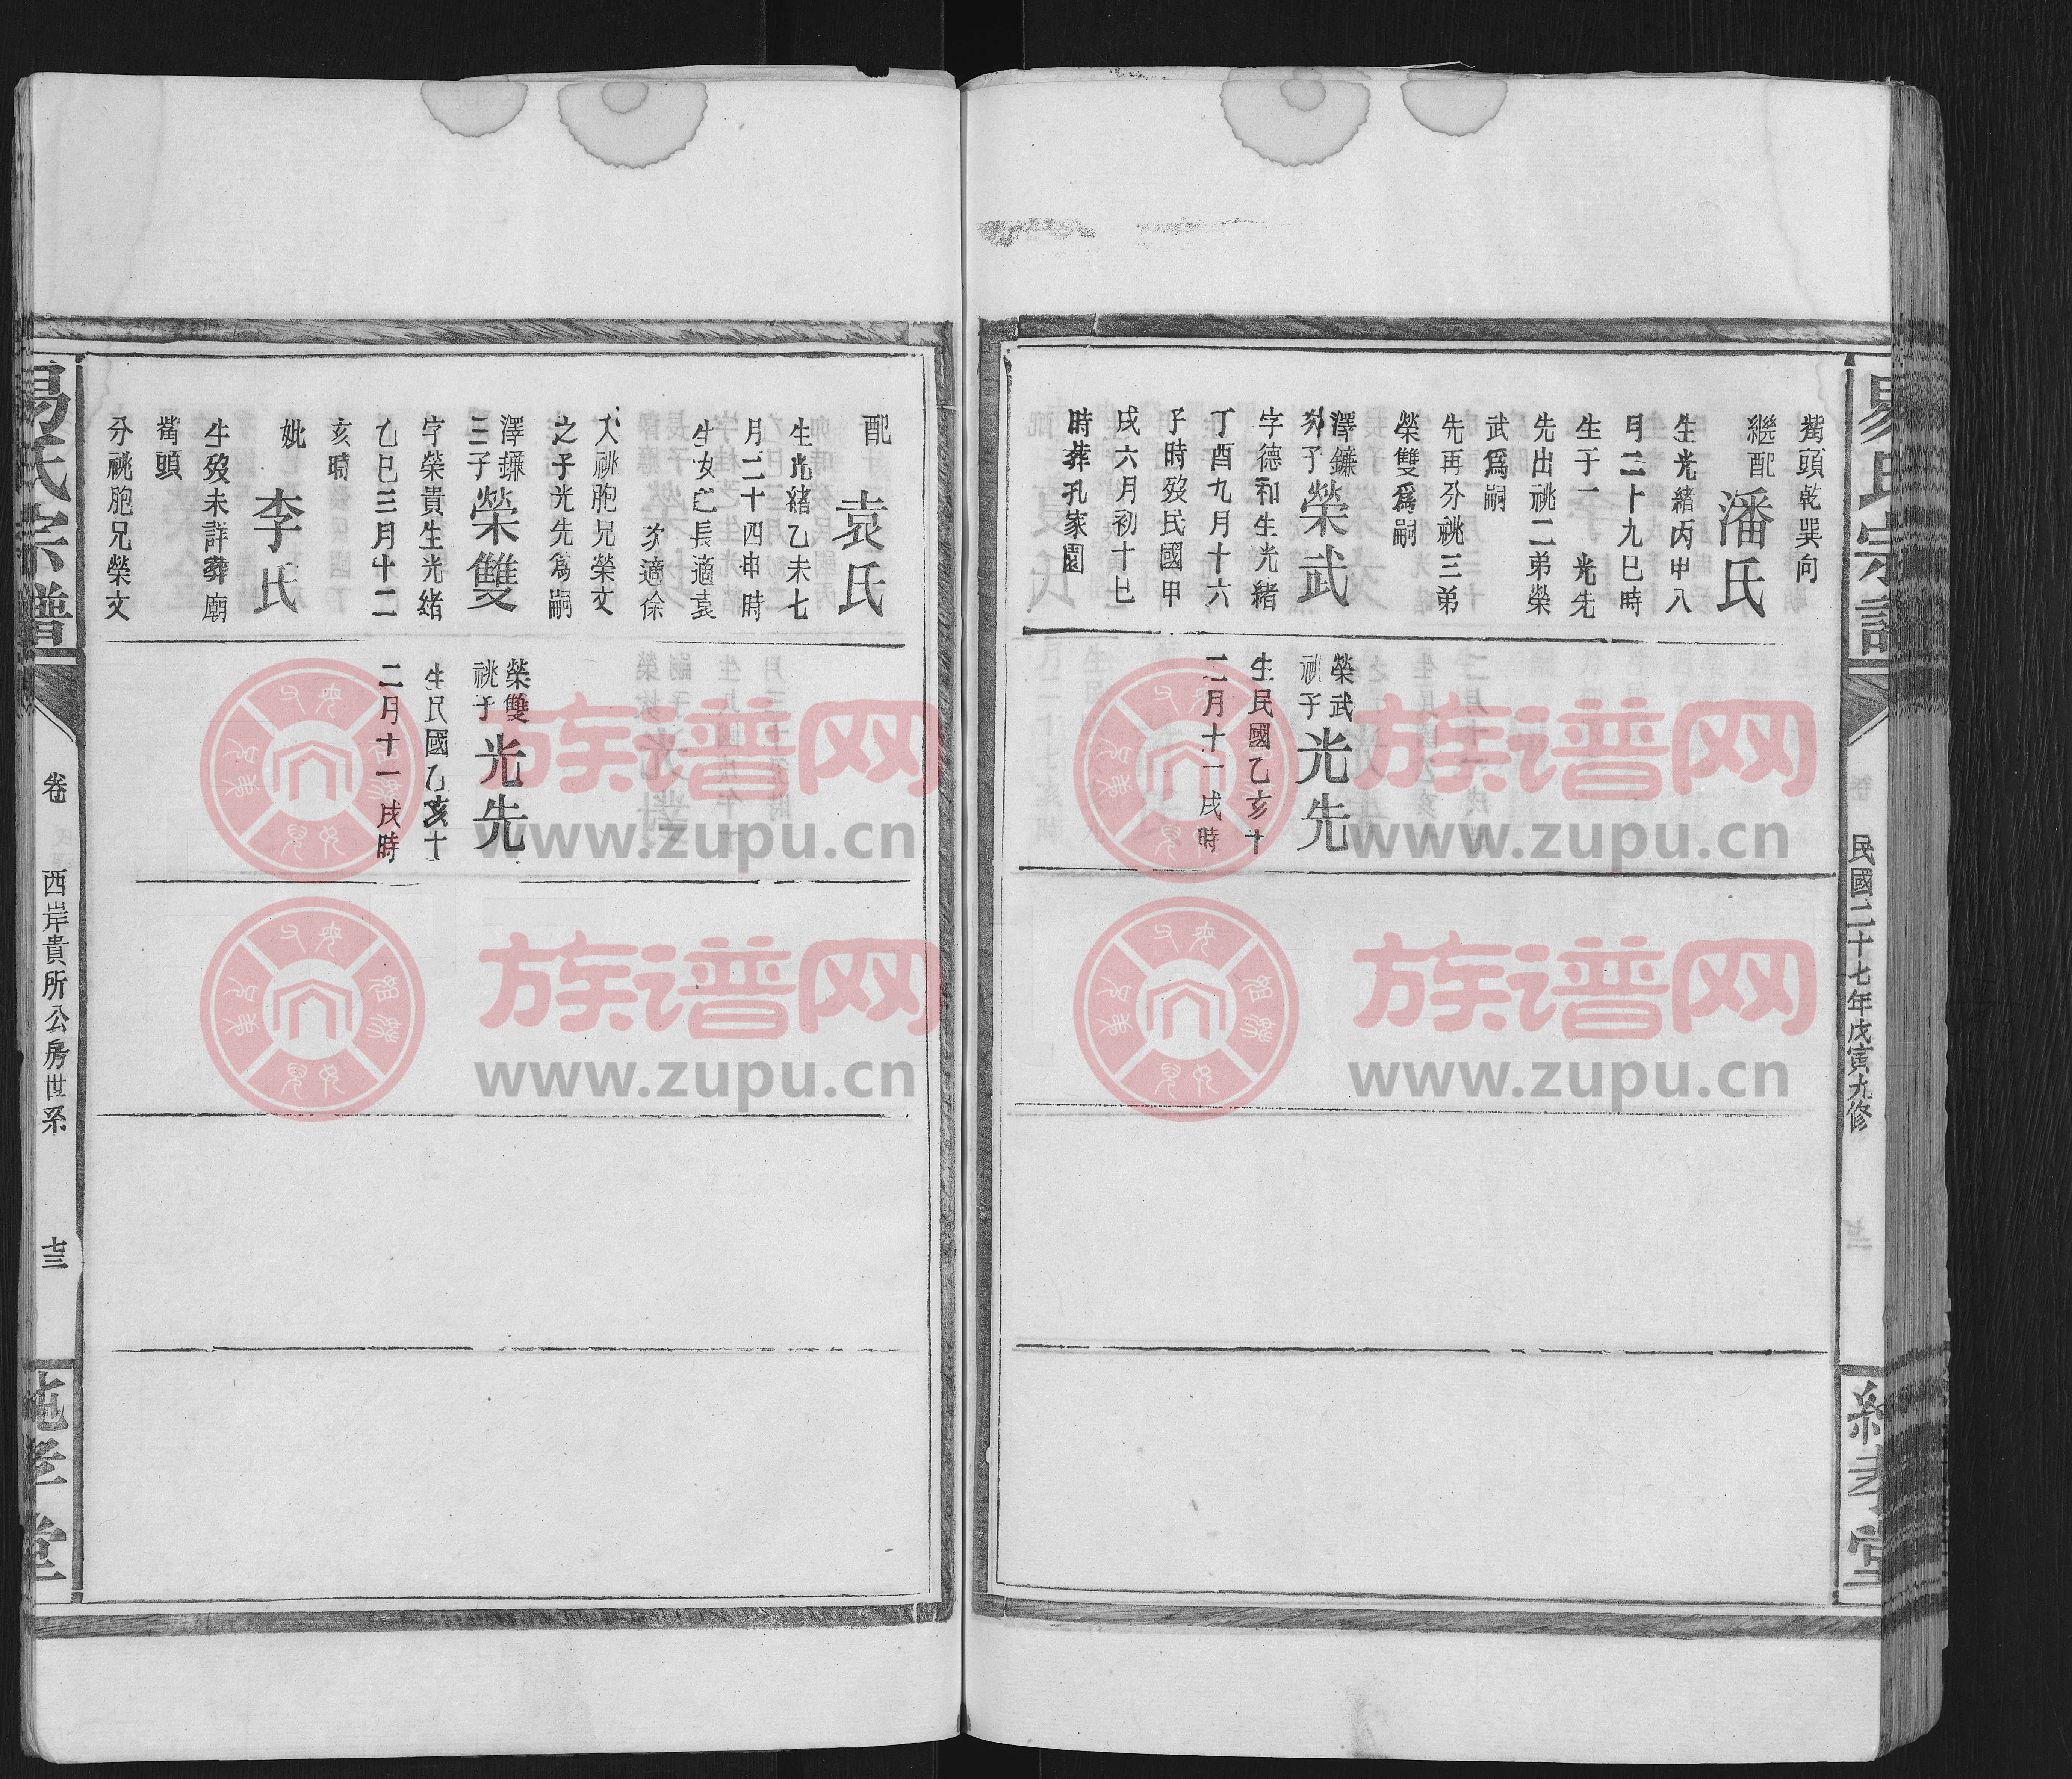 易氏宗譜
民國二十七年戊寅九修
純孝堂
嘴頭乾巽向
繼配 潘氏
生光緒丙申八
月二十九巳時
生子一 光先
先出祧二弟榮
武爲嗣
先再分祧三弟
榮雙爲嗣
澤鐮
次子 榮武
字德和生光緒
丁酉九月十六
子時歿民國甲
戌六月初十巳
時葬孔家園
榮武
祧子 光先
生民國乙亥十
二月十一戌時
配 袁氏
生光緒乙未七
月二十四申時
生女二長適袁
次適徐
入祧胞兄榮文
之子光先爲嗣
澤鐮
三子 榮雙
字榮貴生光緒
乙巳三月十二
亥時
妣 李氏
生歿未詳葬廟
嘴頭
分祧胞兄榮文
榮雙
祧子 光先
生民國乙亥十
二月十一戌時
易氏宗譜
卷
西岸貴所公房世系
七三
純孝堂
族谱网
www.zupu.cn
族谱网
www.zupu.cn
族谱网
www.zupu.cn
族谱网
www.zupu.cn